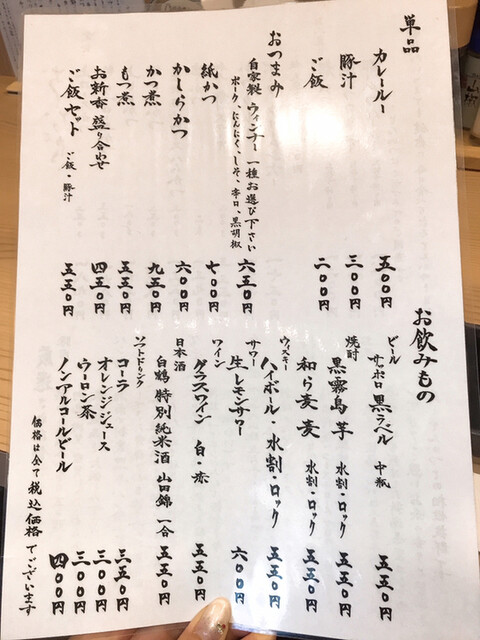 単品
カレールー 五〇〇円
豚汁 三〇〇円
ご飯 二〇〇円
おつまみ
自家製 ウィンナー 一種お選び下さい 六五〇円
ポーク、にんにく、しそ、辛口、黒胡椒
紙かつ 七〇〇円
かしらかつ 六〇〇円
かつ煮 九五〇円
もつ煮 五五〇円
お新香 盛り合わせ 四五〇円
ご飯セット ご飯・豚汁 五五〇円
お飲みもの
ビール
サッポロ 黒ラベル 中瓶 五五〇円
焼酎
黒霧島 芋 水割・ロック 五五〇円
和ら麦 麦 水割・ロック 五五〇円
ウィスキー
ハイボール・水割・ロック 五五〇円
サワー
生レモンサワー 六〇〇円
ワイン
グラスワイン 白・赤 五五〇円
日本酒
白鶴 特別純米酒 山田錦 一合 五五〇円
ソフトドリンク
コーラ 三五〇円
オレンジジュース 三〇〇円
ウーロン茶 三〇〇円
ノンアルコールビール 四〇〇円
価格は全て税込価格でございます